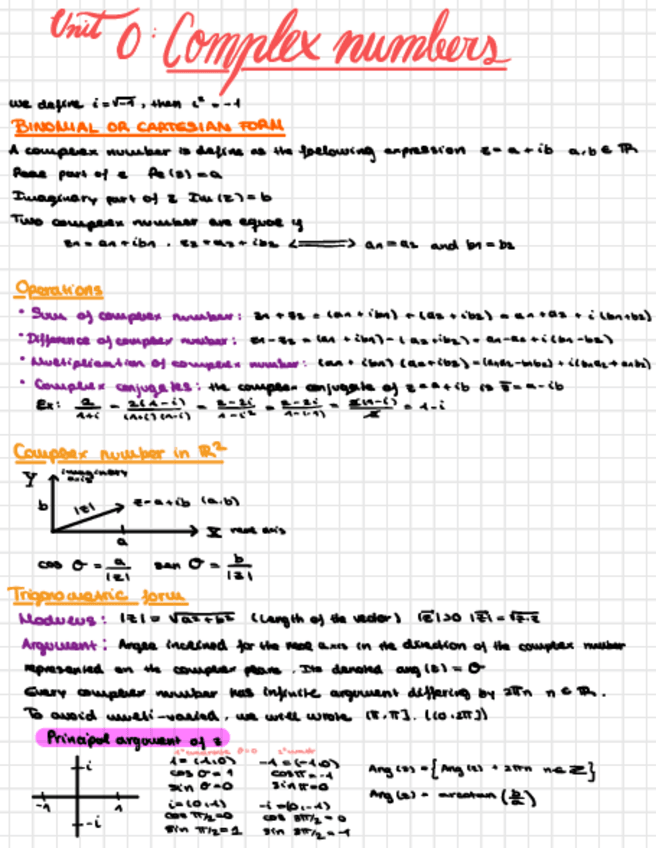 Unit 0: Complex numbers
We define i = √-1, then i² = -1
BINOMIAL OR CARTESIAN FORM
A complex number is define as the following expression z = a + ib a, b ∈ ℝ
Real part of z Re(z) = a
Imaginary part of z Im(z) = b
Two complex number are equal if
z1 = a1 + ib1 . z2 = a2 + ib2 ⟺ a1 = a2 and b1 = b2
Operations
• Sum of complex number: z1 + z2 = (a1 + ib1) + (a2 + ib2) = a1 + a2 + i(b1+b2)
• Difference of complex number: z1 - z2 = (a1 + ib1) - (a2 + ib2) = a1 - a2 + i(b1 - b2)
• Multiplication of complex number: (a1 + ib1) (a2 + ib2) = (a1a2 - b1b2) + i(b1a2 + a1b2)
• Complex conjugates: the complex conjugate of z = a + ib is z̅ = a - ib
Ex: 2/(1+i) = 2(1-i)/((1+i)(1-i)) = (2-2i)/(1-i²) = (2-2i)/(1-(-1)) = 2(1-i)/2 = 1-i
Complex number in ℝ²
Y imaginary axis
b |z| z = a + ib (a,b)
X real axis
a
cos θ = a/|z| sen θ = b/|z|
Trigonometric form
Modulus: |z| = √a²+b² (Length of the vector) |z|>0 |z| = √z·z̅
Argument: Angle inclined for the real axis in the direction of the complex number
represented on the complex plane. Its denoted arg(z) = θ
Every complex number has infinite argument differing by 2πn n ∈ ℝ.
To avoid multi-valued, we will wrote (π, π]. ((0, 2π])
Principal argument of z
θ=0
1 = (1,0) -1 = (-1,0)
cos θ = 1 cos π = -1
sin θ = 0 sin π = 0
i = (0,1) -i = (0,-1)
cos π/2 = 0 cos 3π/2 = 0
sin π/2 = 1 sin 3π/2 = -1
i
-1 1
-i
Arg(z) = {Arg(z) + 2πn n ∈ ℤ}
Arg(z) = arctan (b/a)